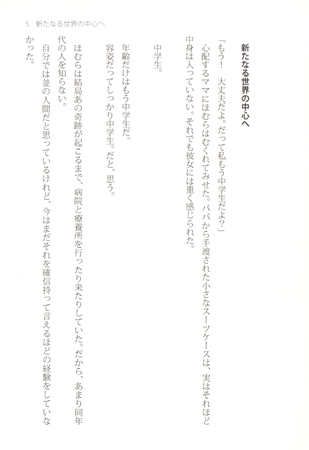 5　新たなる世界の中心へ
新たなる世界の中心へ
「もう！　大丈夫だよ。だって私もう中学生だよ？」
心配するママにほむらはむくれてみせた。パパから手渡された小さなスーツケースは、実はそれほど
中身は入っていない。それでも彼女には重く感じられた。
中学生。
年齢だけはもう中学生だ。
容姿だってしっかり中学生。だと、思う。
ほむらは結局あの奇跡が起こるまで、病院と療養所を行ったり来たりしていた。だから、あまり同年
代の人を知らない。
自分では並の人間だと思っているけれど、今はまだそれを確信持って言えるほどの経験をしていな
かった。